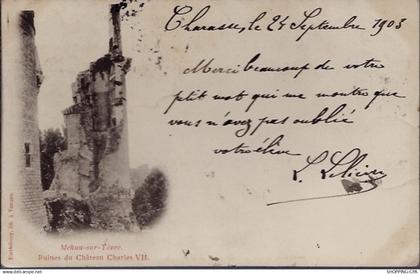 Charasse, le 24 Septembre 1903
Merci beaucoup de votre
ptit mot qui me montre que
vous n'avez pas oublié
votre élève
Mehun-sur-Yèvre.
Ruines du Château Charles VII.